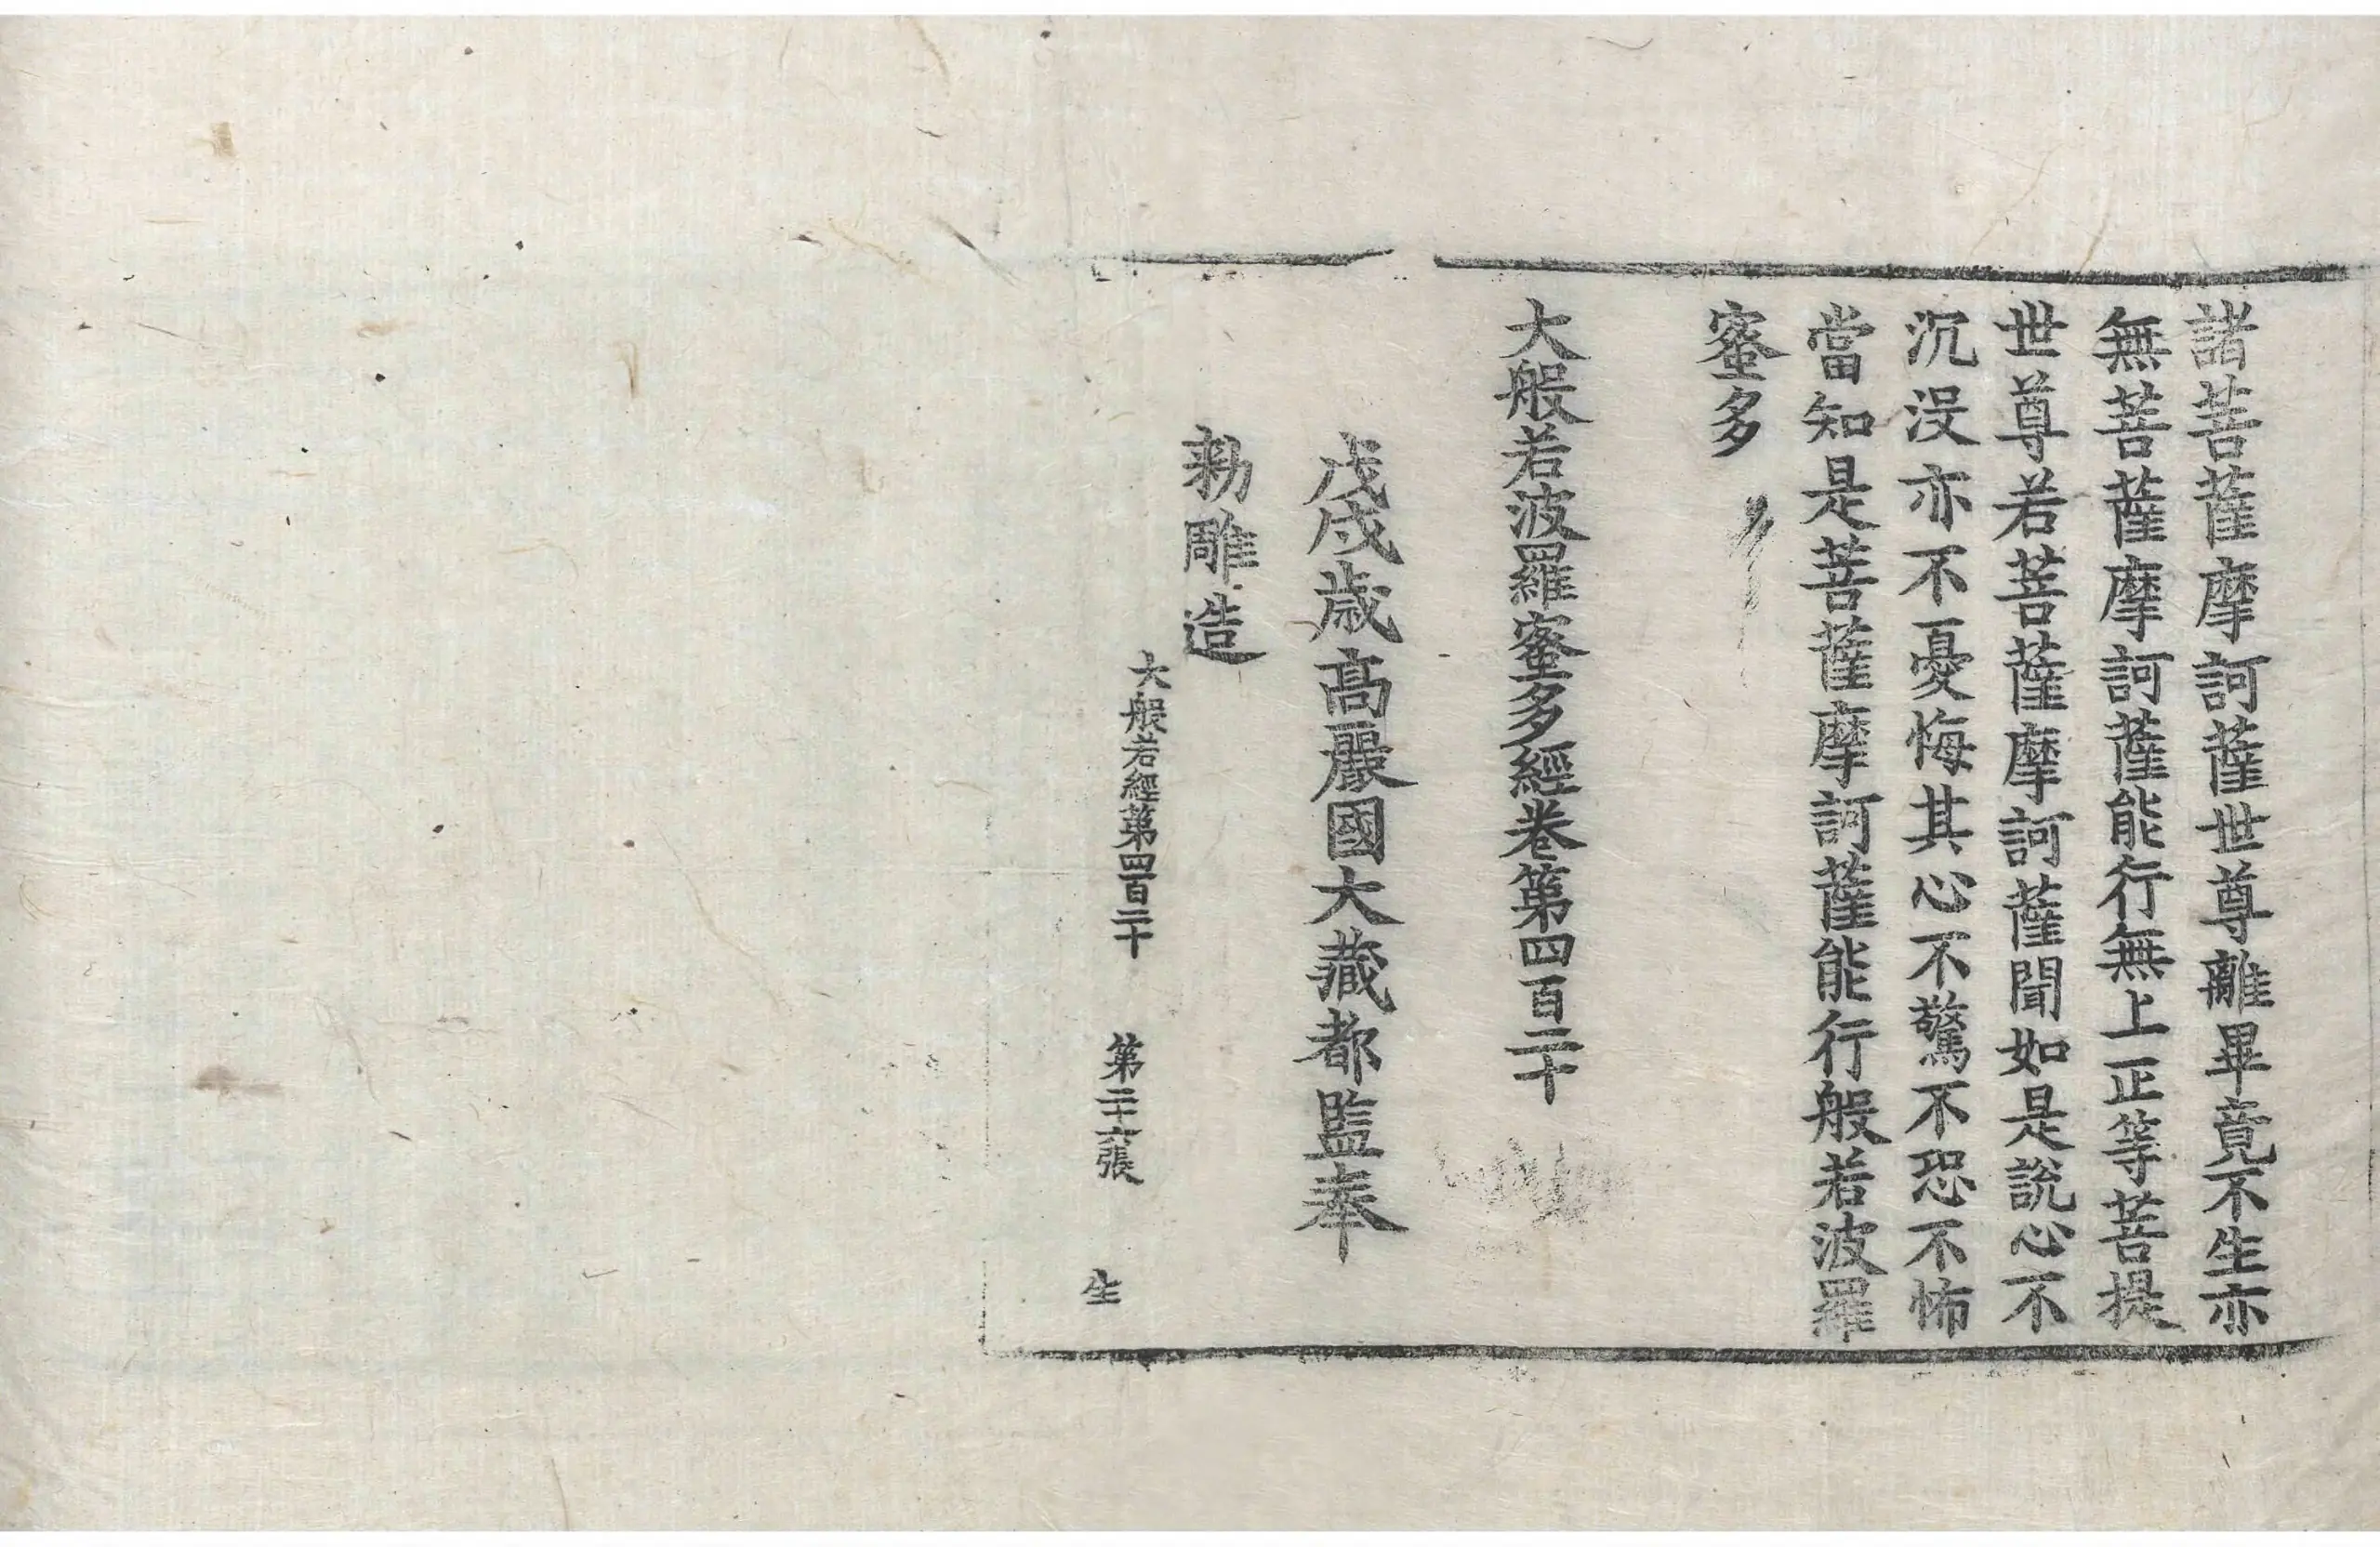 諸菩薩摩訶薩世尊離畢竟不生亦
無菩薩摩訶薩能行無上正等菩提
世尊若菩薩摩訶薩聞如是說心不
沉没亦不憂悔其心不驚不恐不怖
當知是菩薩摩訶薩能行般若波羅
蜜多
大般若波羅蜜多經卷第四百二十
戊戌歲高麗國大藏都監奉
勑雕造
大般若經第四百二十 第二十六張 生